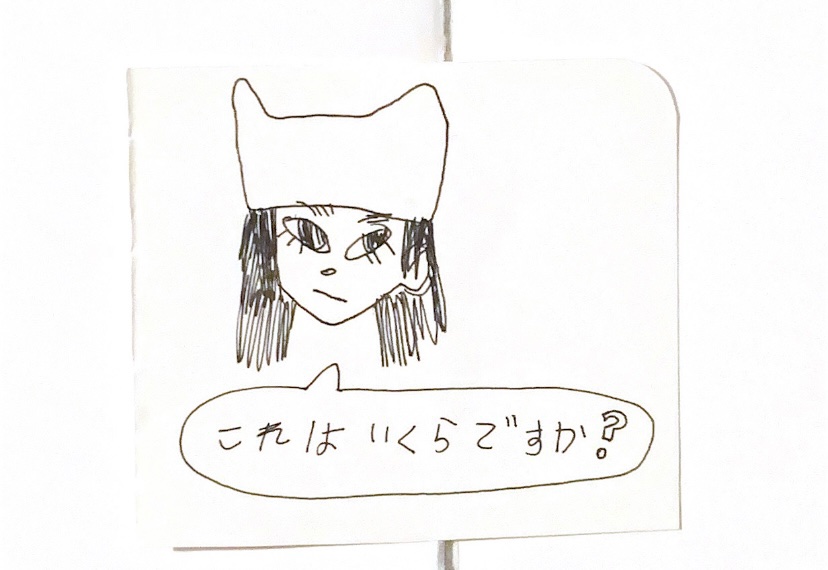 これは いくらですか?